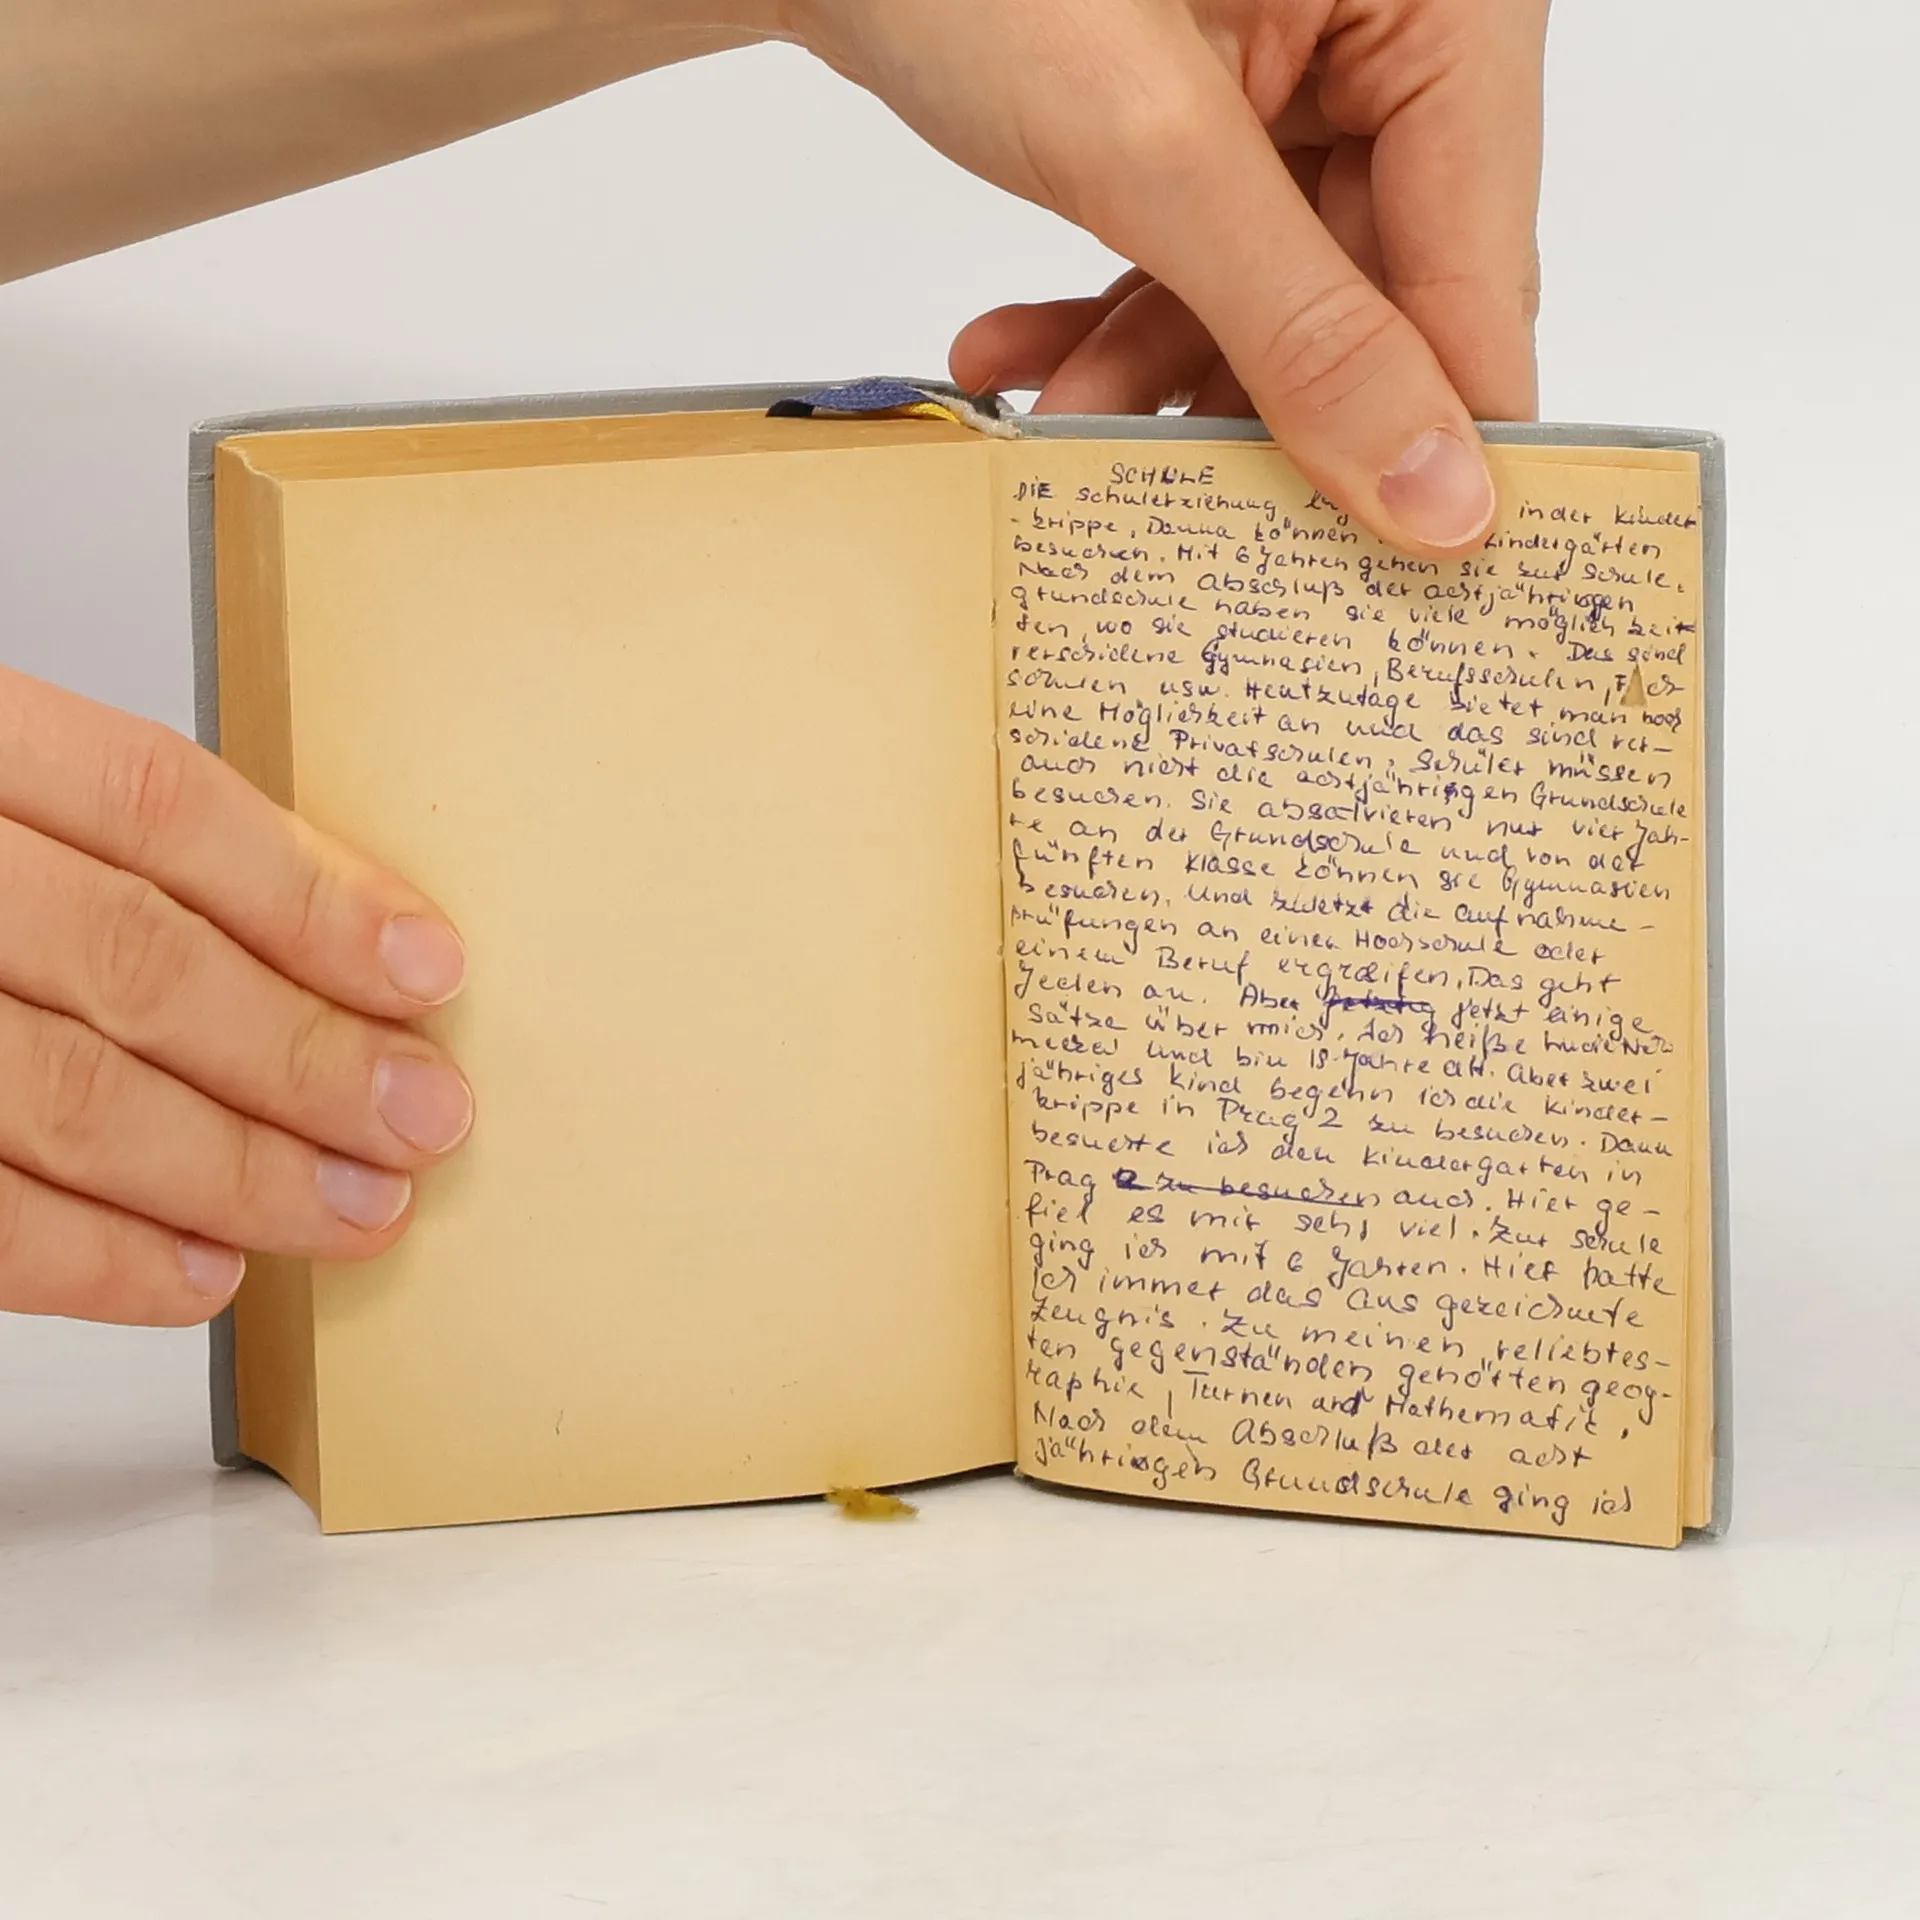 SCHULE
DIE schulerziehung in der Kinder
- krippe, Danna können Kindergärten
besuchen. Mit 6 Jahren gehen sie zur Schule.
Nach dem Abschluß der achtjähringen
grundschule haben sie viele möglichkeit
ten, wo sie studieren können. Das sind
verschidene Gymnasien, Berufsschulen, Fach
schulen usw. Heutzutage bietet man noch
eine Möglichkeit an und das sind ver-
schidene Privatschulen. Schüler müssen
auch nicht die achtjähringen Grundschule
besuchen. Sie absolvieren nur vier Jah-
re an der Grundschule und von der
fünften Klasse können sie Gymnasien
besuchen. Und zuletzt die aufnahme-
prüfungen an einer Hochschule oder
einem Beruf ergreifen. Das geht
Jeden an. Aber jetzt einige
Sätze über mich. Ich heiße
und bin 18 Jahre alt. Aber zwei
jähriges Kind begehn ich die Kinder-
krippe in Prag 2 zu besuchen. Dann
besuchte ich den Kindergarten in
Prag 2 zu besuchen auch. Hier ge-
fiel es mir sehr viel. Zur Schule
ging ich mit 6 Jahren. Hier hatte
Ich immer das ausgezeichnete
Zeugnis. Zu meinen veliebtes-
ten gegenständen gehörten geog-
raphie, Turnen and Mathematik,
Nach dem Abschluß der acht
jähringen Grundschule ging ich